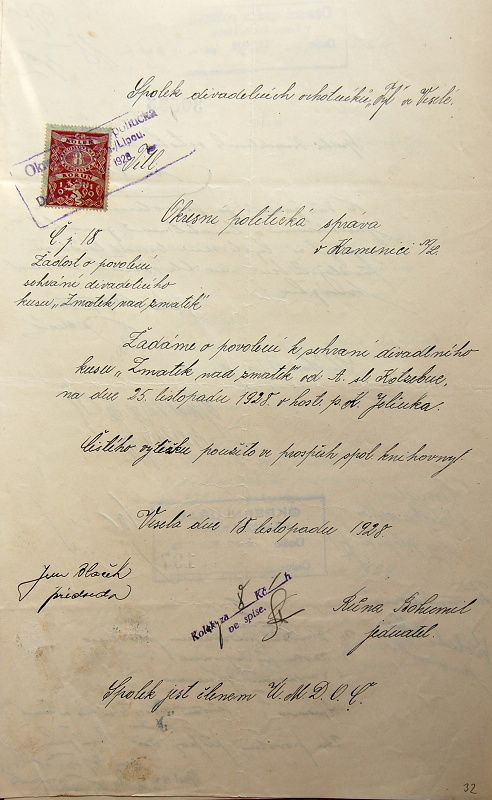 Spolek divadelních ochotníků „Tyl" ve Veselé.
KOLEK
8
KORUN
politická
Lipou.
1928
Vel.
Okresní politická správa
v Kamenici n/L.
Č. j. 18
Žádost o povolení
sehrání divadelního
kusu „Zmatek nad zmatek"
Žádáme o povolení k sehrání divadelního
kusu „Zmatek nad zmatek" od A. sl. Kotzebue,
na den 25. listopadu 1928 v host. p. K. Jelínka.
Čistého výtěžku použito ve prospěch spol. knihovny.
Veselá dne 18 listopadu 1928.
Jan
předseda
Kolek za 8 Kč h
ve spise.
Růna Bohumil
jednatel.
Spolek jest členem Ú. M. D. O. Č.
32